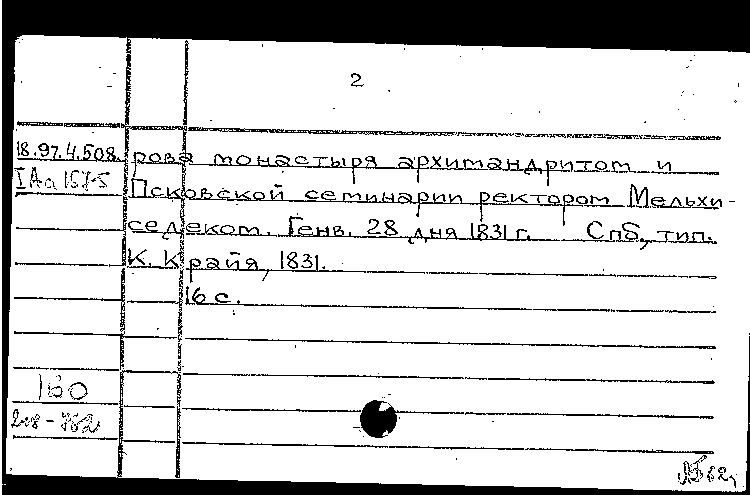 2
18.97.4.508. рова монастыря архимандритом и
IAa 157-5 Псковской семинарии ректором Мельхи-
седеком. Генв. 28 дня 1831 г. Спб, тип.
К. Крайя, 1831.
16 с.
160